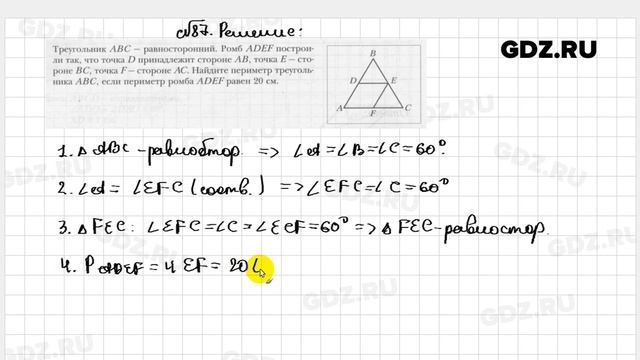 №87. Решение:
GDZ.RU
Треугольник ABC — равносторонний. Ромб ADEF построи-
ли так, что точка D принадлежит стороне AB, точка E — сто-
роне BC, точка F — стороне AC. Найдите периметр треуголь-
ника ABC, если периметр ромба ADEF равен 20 см.
B
D E
A F C
1. △ABC - равностор. => ∠A = ∠B = ∠C = 60°.
2. ∠A = ∠EFC (соотв.) => ∠EFC = ∠C = 60°
3. △FEC: ∠EFC = ∠C = ∠ECF = 60° => △FEC - равностор.
4. P ADEF = 4 EF = 20